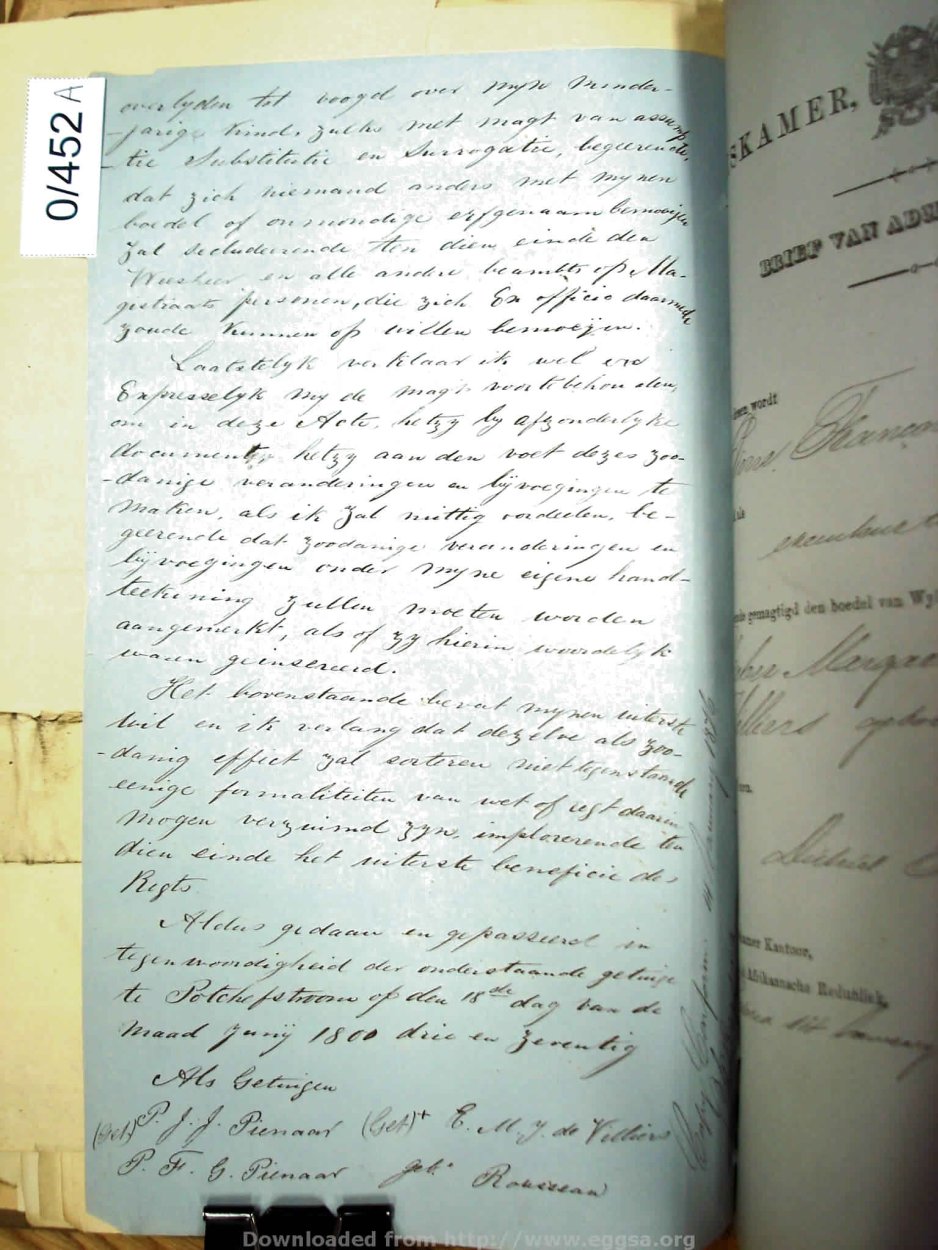 0/452 A
overlyden tot voogd over myn minder-
-jarige kind, zulks met magt van assump-
-tie Substitutie en Surrogatie, begeerende,
dat zich niemand anders met mynen
boedel of onmondige erfgenaam bemoeijen
zal secludeerende ten dien einde den
Weesheer en alle andere beambts of Ma-
gistraats personen, die zich Ex officio daarmede
zoude kunnen of willen bemoeijen.
Laatstelyk verklaar ik wel en
Expresselyk my de magt voortebehouden,
om in deze Acte, hetzy by afzonderlyke
documenten, hetzy aan den voet dezes zoo-
-danige veranderingen en byvoegingen te
maken, als ik zal nuttig oordeelen, be-
geerende dat zoodanige veranderingen en
byvoegingen onder myne eigene hand-
teekening zullen moeten worden
aangemerkt, als of zy hierin woordelyk
waren geinsereerd.
Het bovenstaande bevat mynen uiterste
wil en ik verlang dat dezelve als zoo-
-danig effect zal sorteren niettegenstaande
eenige formaliteiten van wet of regt daarin
mogen verzuimd zyn, imploreerende ten
dien einde het uiterste beneficie des
Regts.
Aldus gedaan en gepasseerd in
tegenwoordigheid der onderstaande getuige
te Potchefstroom op den 18de dag van de
maad Junij 1800 drie en zeventig
Als Getuigen
(Get) P. J. J. Pienaar (Get)+ E. M. J. de Villiers
P. F. G. Pienaar geb. Rousseau
Copy Conform January 1876
SKAMER,
BRIEF VAN ADM
wordt
als
gemagtigd den boedel van Wyl
Margar
Villiers
District
Kantoor,
Afrikaansche Republiek,
Downloaded from http://www.eggsa.org